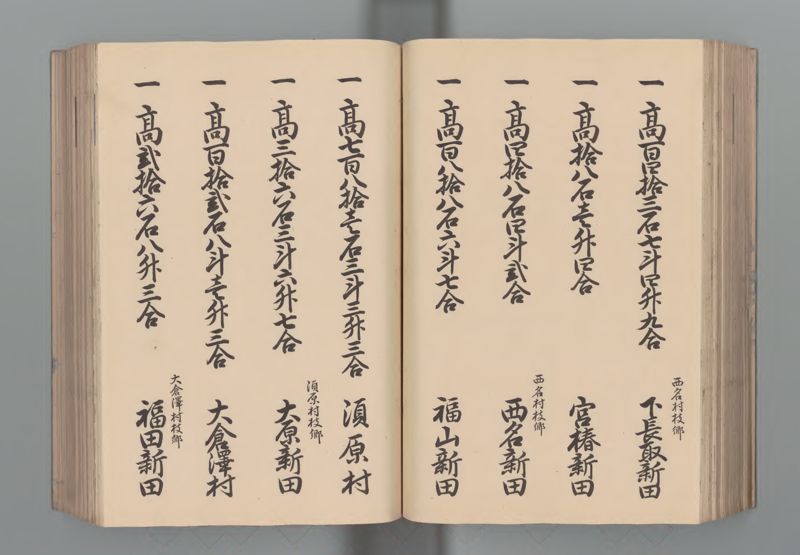 一 髙百四拾三石七斗四升九合
西名村枝郷
下長取新田
一 髙拾八石壱升四合
宮椿新田
一 髙四拾八石四斗弐合
西名村枝郷
西名新田
一 髙百八拾八石六斗七合
福山新田
一 髙七百八拾壱石三斗三升三合
須原村
一 髙三拾六石三斗六升七合
須原村枝郷
大原新田
一 髙百拾弐石八斗壱升三合
大倉澤村
一 髙弐拾六石八升三合
大倉澤村枝郷
福田新田